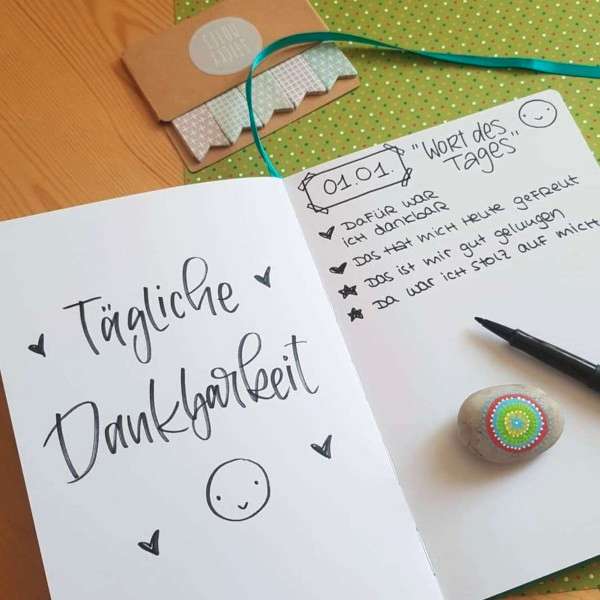 Tägliche
Dankbarkeit
01.01.
"Wort des
Tages"
Dafür war
ich dankbar
Das hat mich heute gefreut
Das ist mir gut gelungen
Da war ich stolz auf mich